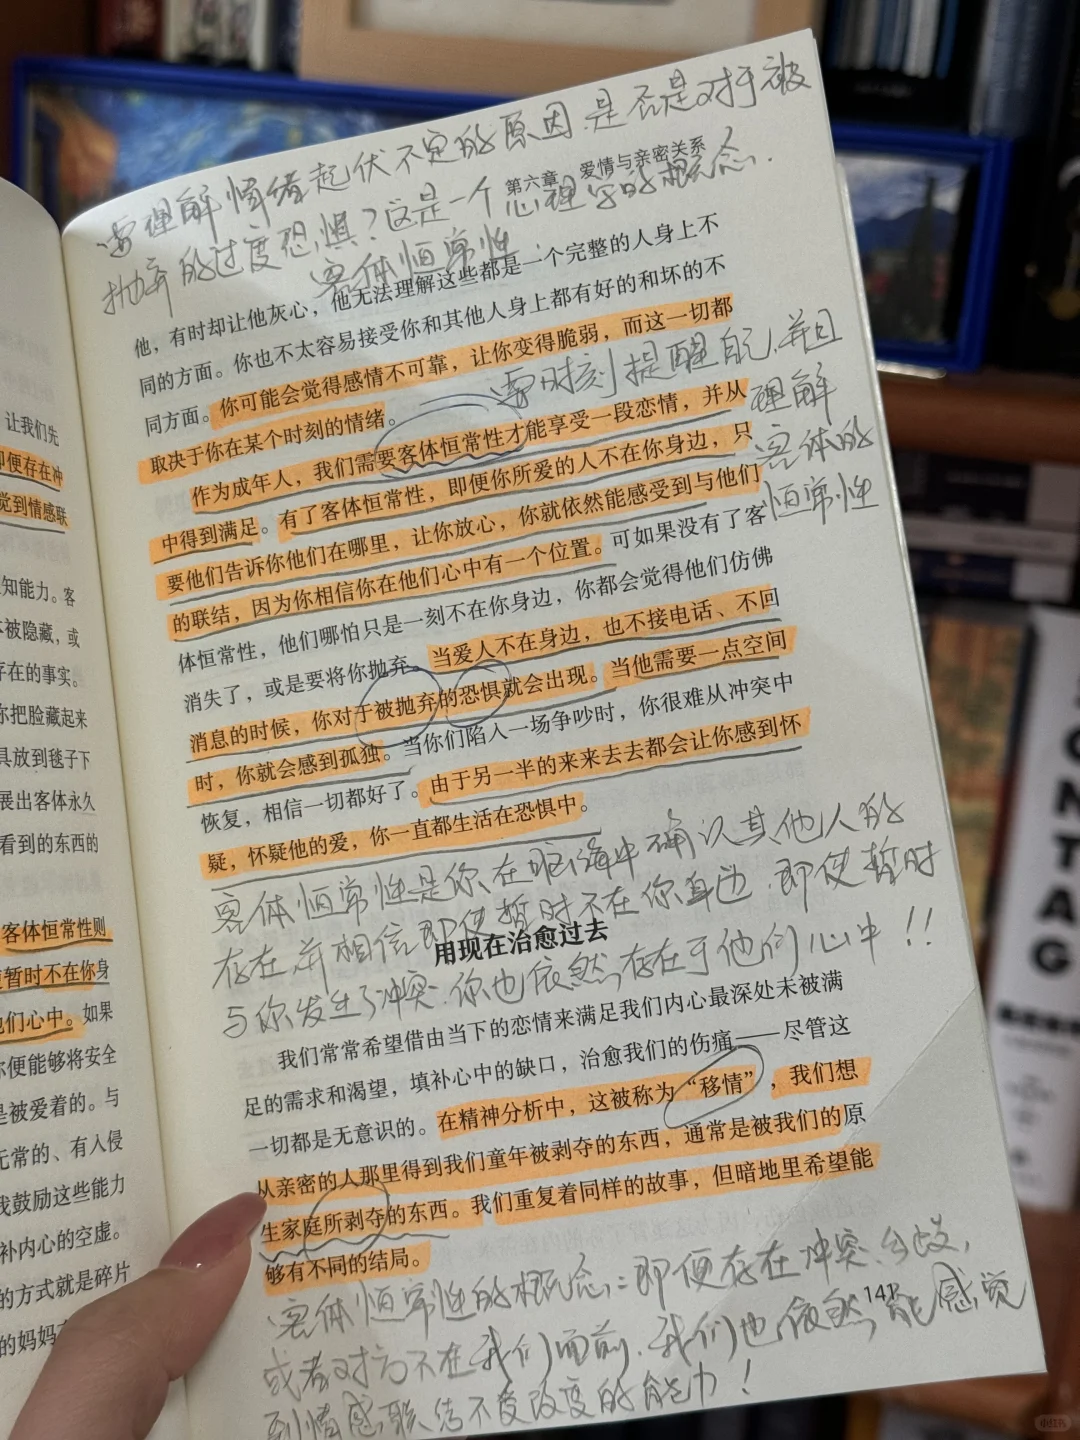 需理解情绪起伏不定的原因.是否是对于被
抛弃的过度恐惧?这是一个心理学的概念.
客体恒常性
第六章 爱情与亲密关系
他，有时却让他灰心，他无法理解这些都是一个完整的人身上不
同的方面。你也不太容易接受你和其他人身上都有好的和坏的不
同方面。你可能会觉得感情不可靠，让你变得脆弱，而这一切都
取决于你在某个时刻的情绪。
需时刻提醒自己.并且
理解
客体的
恒常性
作为成年人，我们需要客体恒常性才能享受一段恋情，并从
中得到满足。有了客体恒常性，即便你所爱的人不在你身边，只
要他们告诉你他们在哪里，让你放心，你就依然能感受到与他们
的联结，因为你相信你在他们心中有一个位置。可如果没有了客
体恒常性，他们哪怕只是一刻不在你身边，你都会觉得他们仿佛
消失了，或是要将你抛弃。当爱人不在身边，也不接电话、不回
消息的时候，你对于被抛弃的恐惧就会出现。当他需要一点空间
时，你就会感到孤独。当你们陷入一场争吵时，你很难从冲突中
恢复，相信一切都好了。由于另一半的来来去去都会让你感到怀
疑，怀疑他的爱，你一直都生活在恐惧中。
客体恒常性是你在脑海中确认其他人的
存在并相信,即使暂时不在你身边.即使暂时
与你发生了冲突.你也依然存在于他们心中!!
用现在治愈过去
我们常常希望借由当下的恋情来满足我们内心最深处未被满
足的需求和渴望，填补心中的缺口，治愈我们的伤痛——尽管这
一切都是无意识的。在精神分析中，这被称为“移情”，我们想
从亲密的人那里得到我们童年被剥夺的东西，通常是被我们的原
生家庭所剥夺的东西。我们重复着同样的故事，但暗地里希望能
够有不同的结局。
客体恒常性的概念:即便存在冲突.分歧,
或者对方不在我们面前.我们也依然能感觉
到情感联结不变改变的能力!
141
让我们先
即便存在冲
觉到情感联
知能力。客
体被隐藏，或
存在的事实。
你把脸藏起来
具放到毯子下
展出客体永久
看到的东西的
客体恒常性则
暂时不在你身
他们心中。如果
你便能够将安全
是被爱着的。与
无常的、有入侵
我鼓励这些能力
补内心的空虚。
的方式就是碎片
的妈妈
CONTAG
小红书